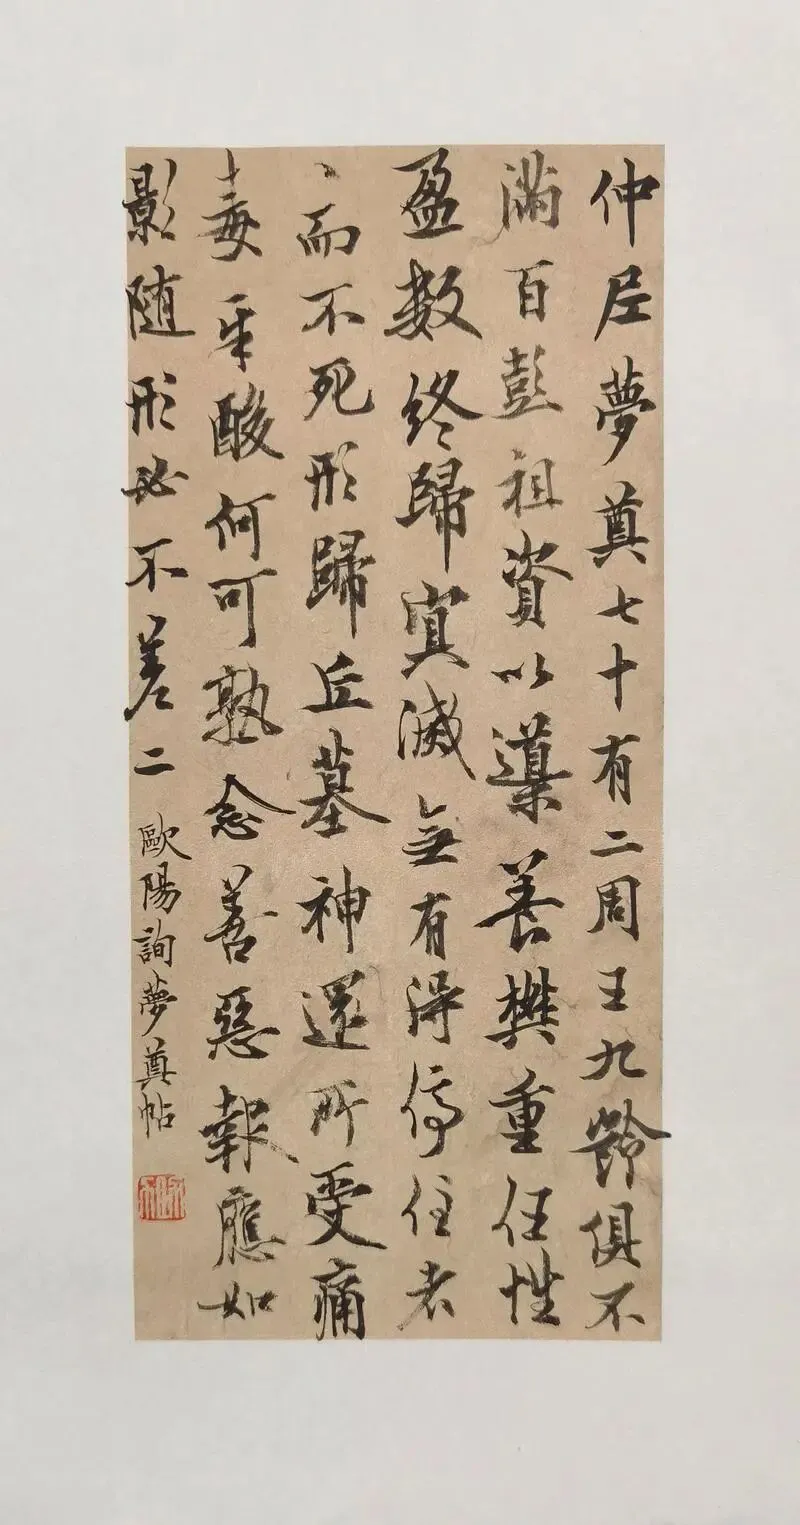 仲尼夢奠七十有二周王九齡俱不
滿百彭祖資以導養樊重任性
盈數終歸冥滅無有得停住者
、而不死形歸丘墓神還所受痛
毒辛酸何可熟念善惡報應如
影随形必不差二
歐陽詢夢奠帖